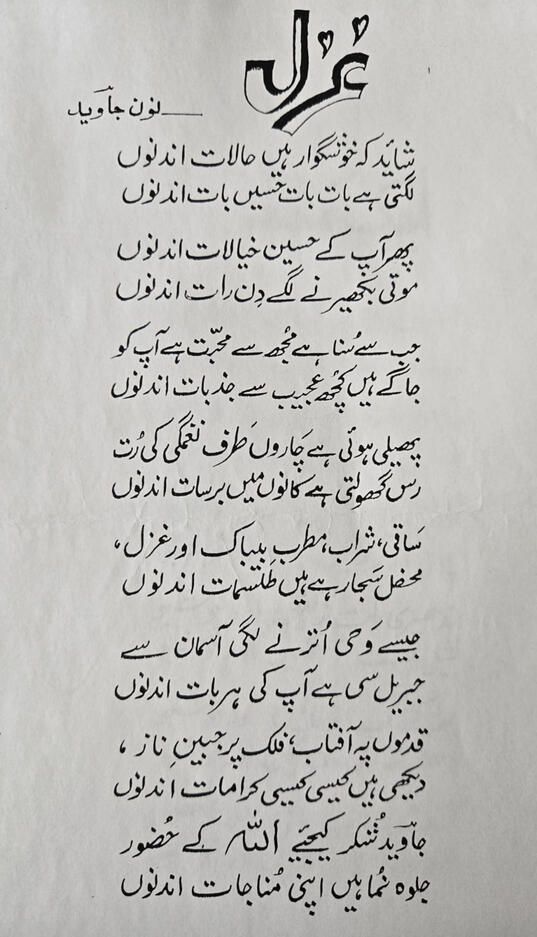 غزل
نون جاوید
شاید کہ خوشگوار ہیں حالات اندنوں
لگتی ہے بات بات حسیں بات اندنوں
پھر آپ کے حسین خیالات اندنوں
موتی بکھیرنے لگے دِن رات اندنوں
جب سے سُنا ہے مجُھ سے محبّت ہے آپ کو
جاگے ہیں کچُھ عجیب سے جذبات اندنوں
پھیلی ہوئی ہے چاروں طرف نغمگی کی رُت
رس گھولتی ہے کانوں میں برسات اندنوں
ساقی، شراب، مطربِ بیباک اور غزل،
محفل سجا رہے ہیں طلسمات اندنوں
جیسے وحی اُترنے لگی آسمان سے
جبریل سی ہے آپ کی ہر بات اندنوں
قدموں پہ آفتاب، فلک پر جبینِ ناز،
دیکھی ہیں کیسی کیسی کرامات اندنوں
جاوید شُکر کیجئیے اللہ کے حُضور
جلوہ نُما ہیں اپنی مُناجات اندنوں